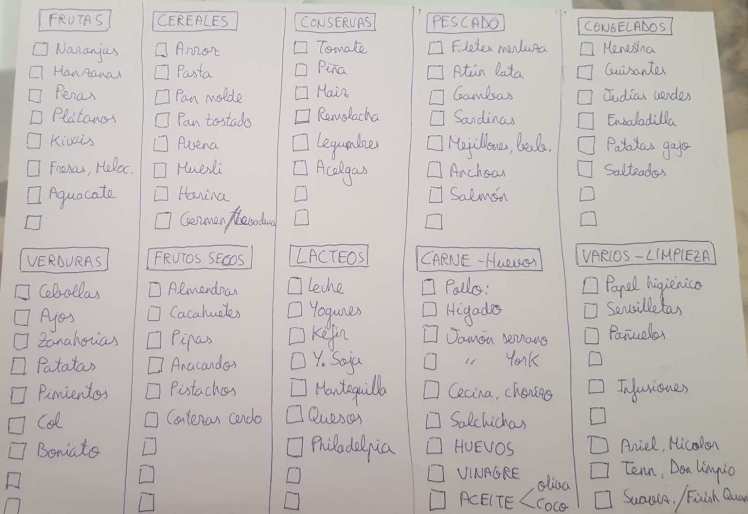 FRUTAS
Naranjas
Manzanas
Peras
Plátanos
Kiwis
Fresas, Meloc.
Aguacate
CEREALES
Arroz
Pasta
Pan molde
Pan tostado
Avena
Muesli
Harina
Germen/Levadura
CONSERVAS
Tomate
Piña
Maiz
Remolacha
Legumbres
Acelgas
PESCADO
Filetes merluza
Atún lata
Gambas
Sardinas
Mejillones, berb.
Anchoas
Salmón
CONGELADOS
Menestra
Guisantes
Judías verdes
Ensaladilla
Patatas gajo
Salteados
VERDURAS
Cebollas
Ajos
Zanahorias
Patatas
Pimientos
Col
Boniato
FRUTOS SECOS
Almendras
Cacahuetes
Pipas
Anacardos
Pistachos
Cortezas cerdo
LACTEOS
Leche
Yogures
Kéfir
Y. Soja
Mantequilla
Quesos
Philadelpia
CARNE - Huevos
Pollo:
Hígado
Jamón serrano
" York
Cecina, chorizo
Salchichas
HUEVOS
VINAGRE
ACEITE < oliva
coco
VARIOS - LIMPIEZA
Papel higiénico
Servilletas
Pañuelos
Infusiones
Ariel, Micolor
Tenn, Don limpio
Suaviz./Finish Quan